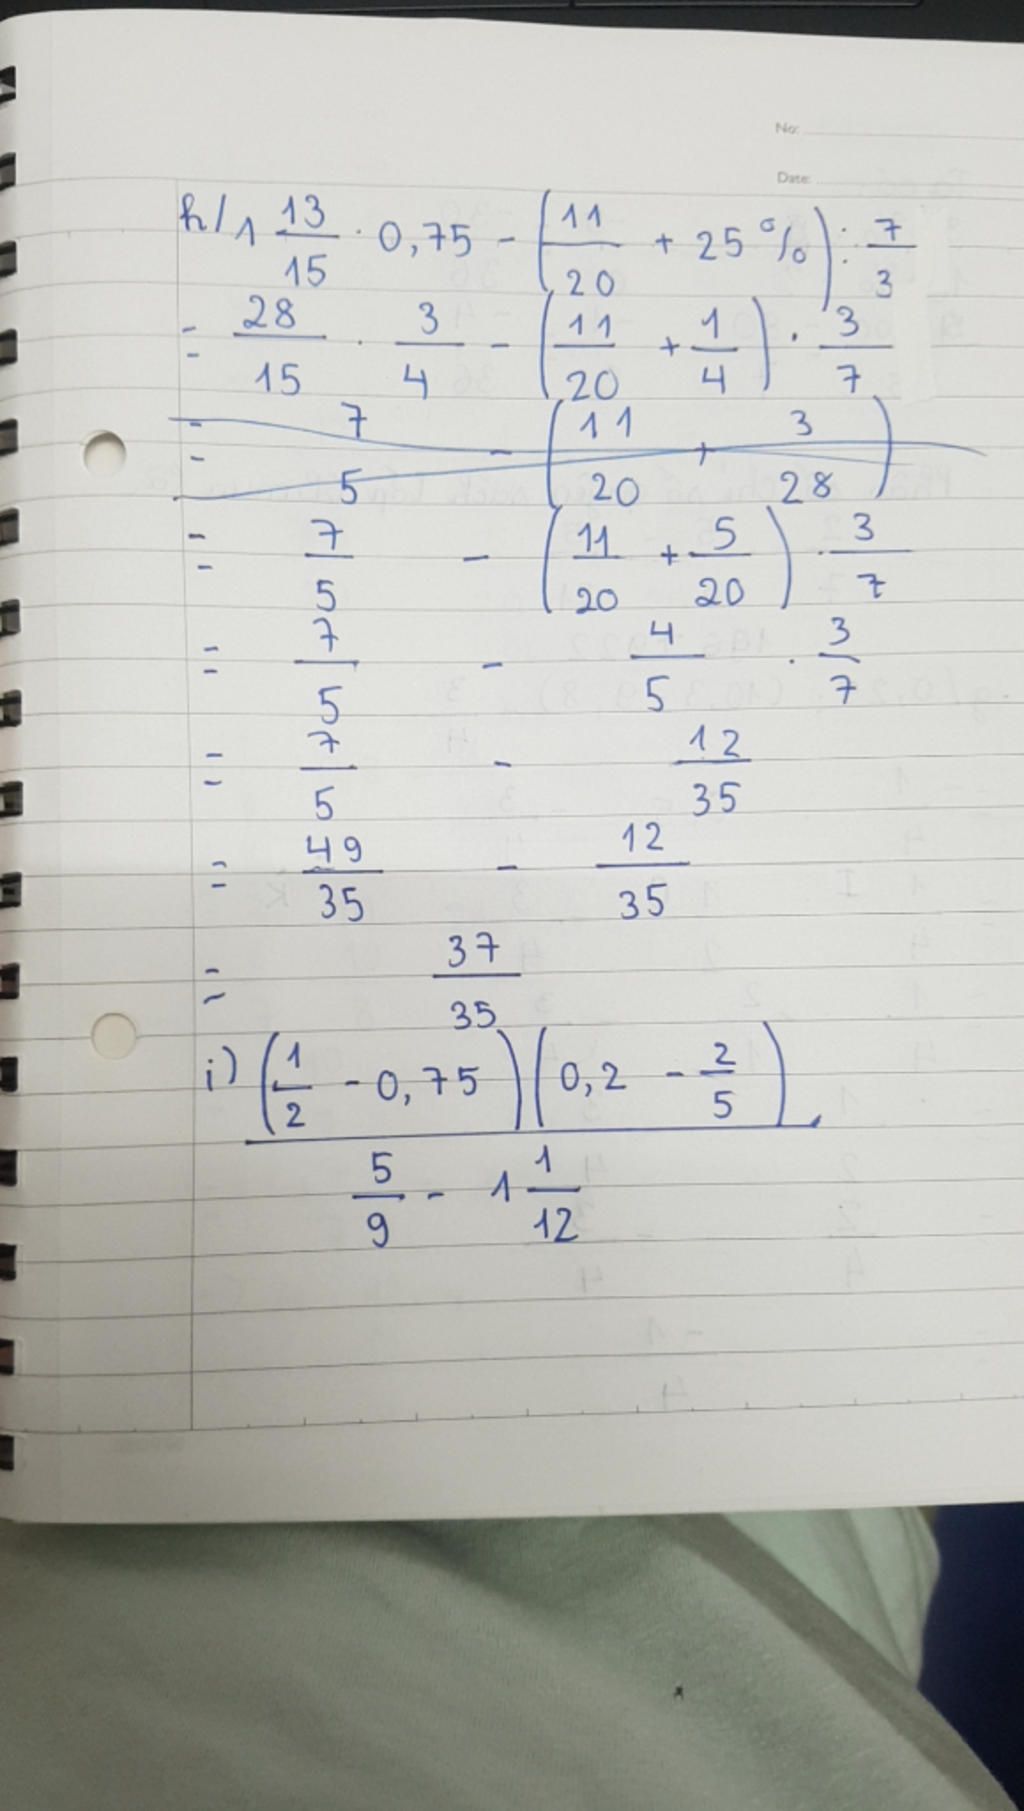 No:
Date:
h/ 1 13/15 · 0,75 - (11/20 + 25%) : 7/3
= 28/15 · 3/4 - (11/20 + 1/4) · 3/7
= 7/5 - (11/20 + 3/28)
= 7/5 - (11/20 + 5/20) · 3/7
= 7/5 - 4/5 · 3/7
= 7/5 - 12/35
= 49/35 - 12/35
= 37/35
i) (1/2 - 0,75)(0,2 - 2/5)
5/9 - 1 1/12